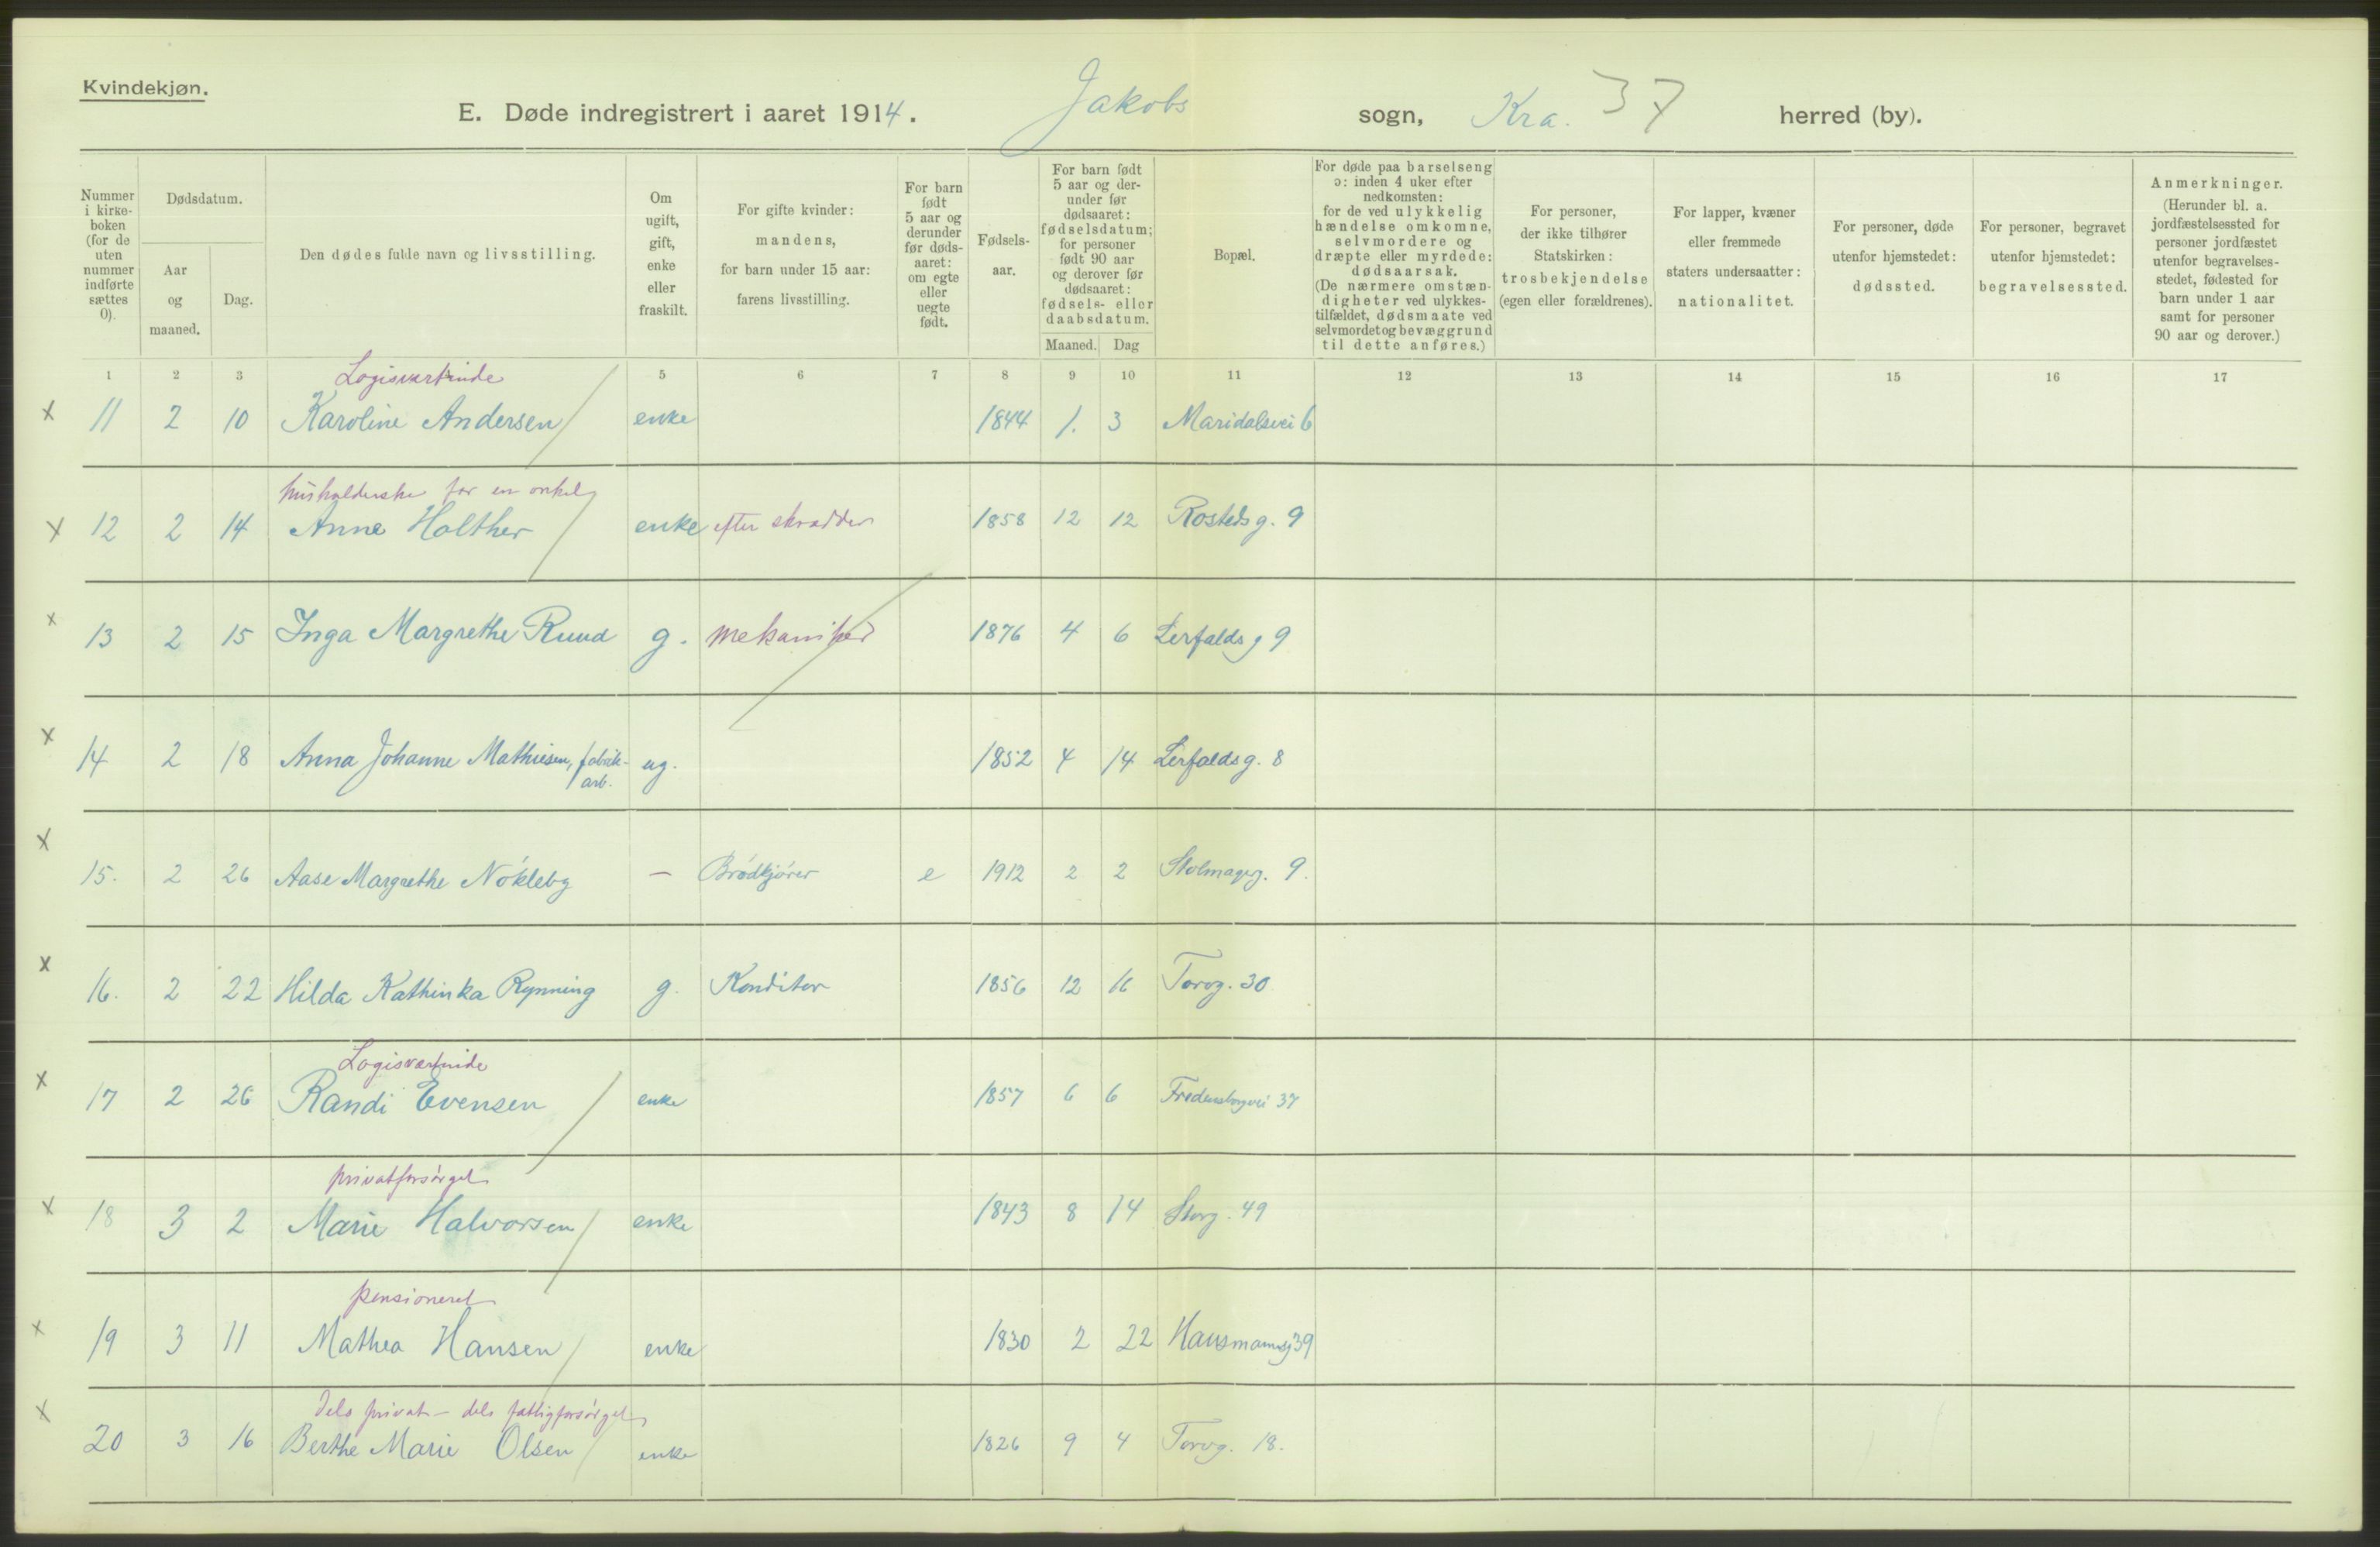 Kvindekjøn.
E. Døde indregistrert i aaret 1914. Jakobs sogn, Kra. 37 herred (by).
Nummer i kirkeboken (for de uten nummer indførte sættes 0).
Dødsdatum.
Aar og maaned.
Dag.
Den dødes fulde navn og livsstilling.
Om ugift, gift, enke eller fraskilt.
For gifte kvinder: mandens, for barn under 15 aar: farens livsstilling.
For barn født 5 aar og derunder før dødsaaret: om egte eller uegte født.
Fødselsaar.
For barn født 5 aar og derunder før dødsaaret: fødselsdatum; for personer født 90 aar og derover før dødsaaret: fødsels- eller daabsdatum.
Maaned. Dag
Bopæl.
For døde paa barselseng ɔ: inden 4 uker efter nedkomsten: for de ved ulykkelig hændelse omkomne, selvmordere og dræpte eller myrdede: dødsaarsak. (De nærmere omstændigheter ved ulykkestilfældet, dødsmaate ved selvmordet og bevæggrund til dette anføres.)
For personer, der ikke tilhører Statskirken: trosbekjendelse (egen eller forældrenes).
For lapper, kvæner eller fremmede staters undersaatter: nationalitet.
For personer, døde utenfor hjemstedet: dødssted.
For personer, begravet utenfor hjemstedet: begravelsessted.
Anmerkninger. (Herunder bl. a. jordfæstelsessted for personer jordfæstet utenfor begravelsesstedet, fødested for barn under 1 aar samt for personer 90 aar og derover.)
1 2 3 5 6 7 8 9 10 11 12 13 14 15 16 17
Logisvertinde
x 11 2 10 Karoline Andersen enke 1844 1. 3 Maridalsvei 6
husholderske for en onkel
x 12 2 14 Anne Holther enke efter skrædder 1858 12 12 Rosteds g. 9
x 13 2 15 Inga Margrethe Ruud g. mekaniker 1876 4 6 Lerfalds g 9
x 14 2 18 Anna Johanne Mathiesen, fabrik- ug. 1852 4 14 Lerfaldsg. 8
arb.
x 15. 2 26 Aase Margrethe Nökleby — Brödkjörer e 1912 2 2 Stolmagerg. 9.
x 16. 2 22 Hilda Kathinka Rynning g. Konditor 1856 12 16 Torvg. 30
Logisværtinde
x 17 2 26 Randi Evensen enke 1857 6 6 Fredensborgvei 37
privatforsörget
x 18 3 2 Marie Halvorsen enke 1843 8 14 Storg. 49
pensioneret
x 19 3 11 Mathea Hansen enke 1830 2 22 Hausmannsg 39
dels privat — dels fattigforsörget
x 20 3 16 Berthe Marie Olsen enke 1826 9 4 Torvg. 18.